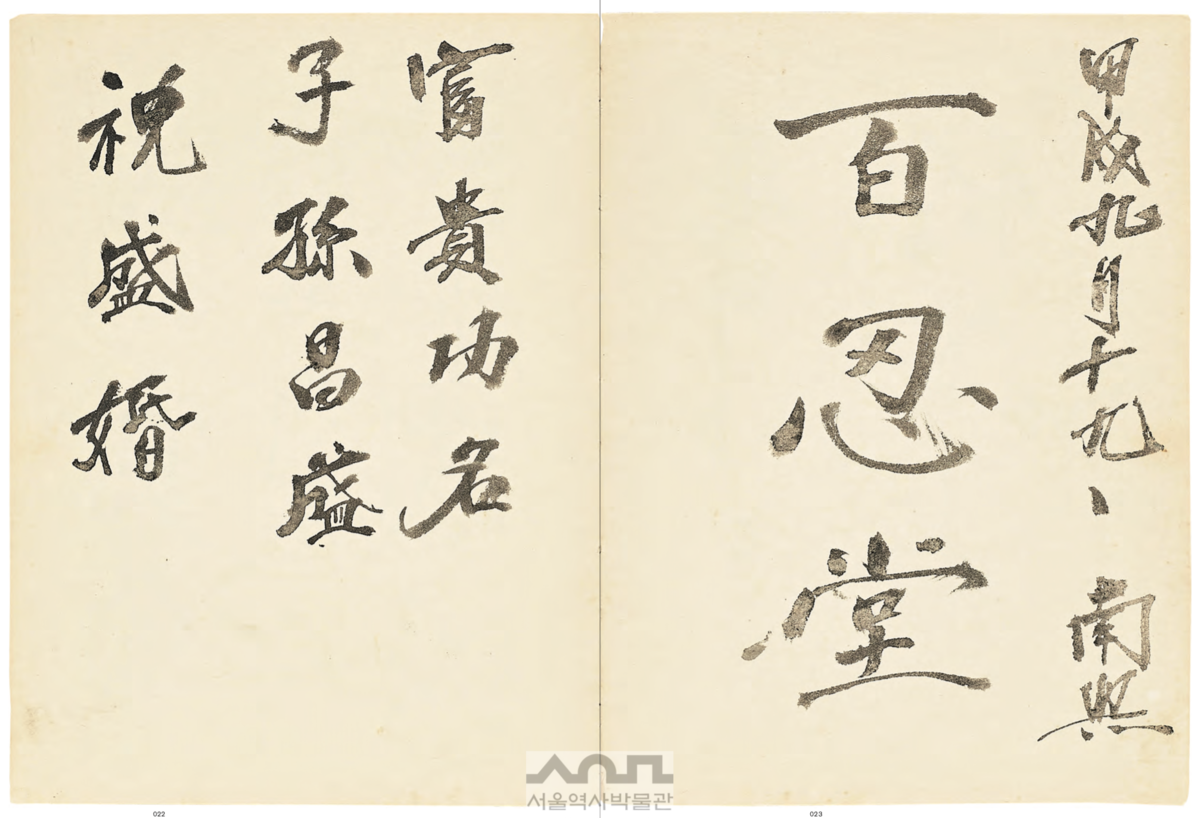 甲戌九月十九、 南熙
百忍堂
富貴功名
子孫昌盛
祝盛婚
서울역사박물관
022
023